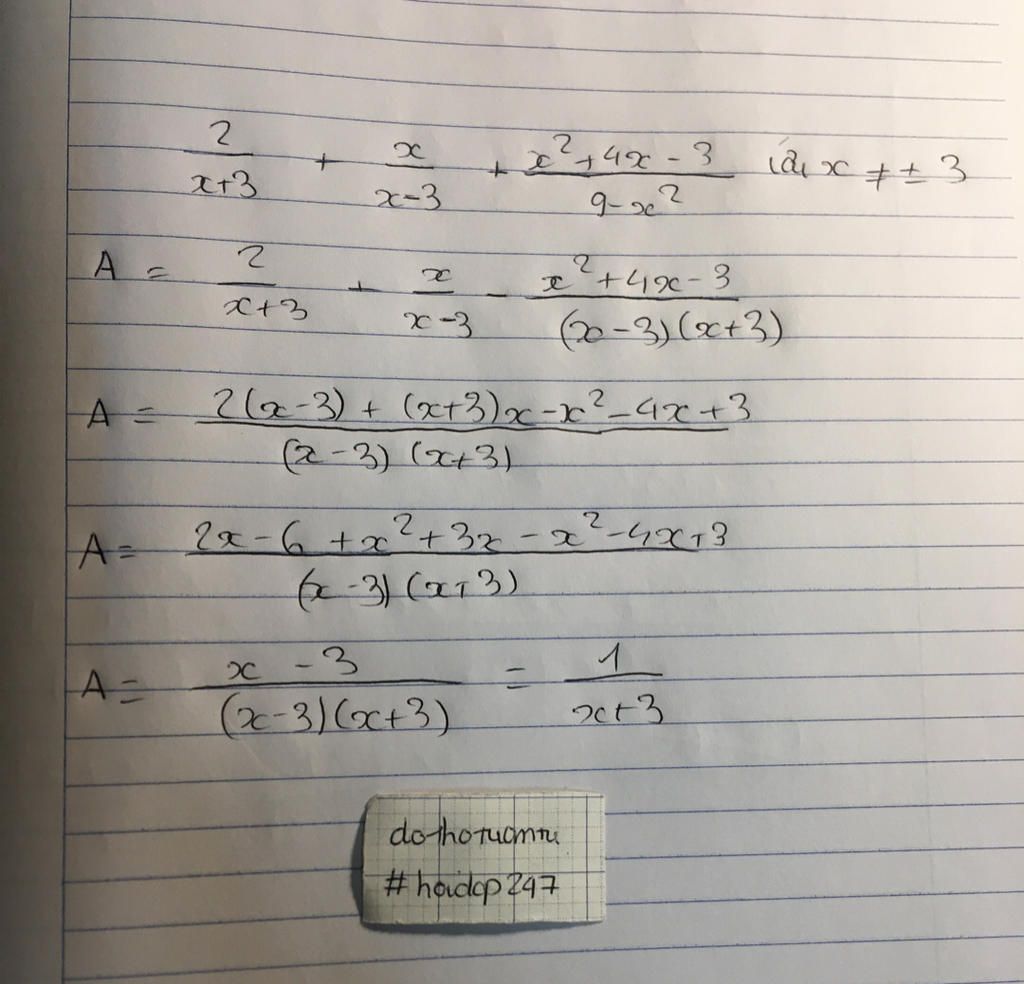 2/(x+3) + x/(x-3) + (x²+4x-3)/(9-x²) x ≠ ± 3
A = 2/(x+3) + x/(x-3) - (x²+4x-3)/((x-3)(x+3))
A = (2(x-3) + (x+3)x - x² - 4x + 3)/((x-3)(x+3))
A = (2x - 6 + x² + 3x - x² - 4x + 3)/((x-3)(x+3))
A = (x - 3)/((x-3)(x+3)) = 1/(x+3)
#hoidap247